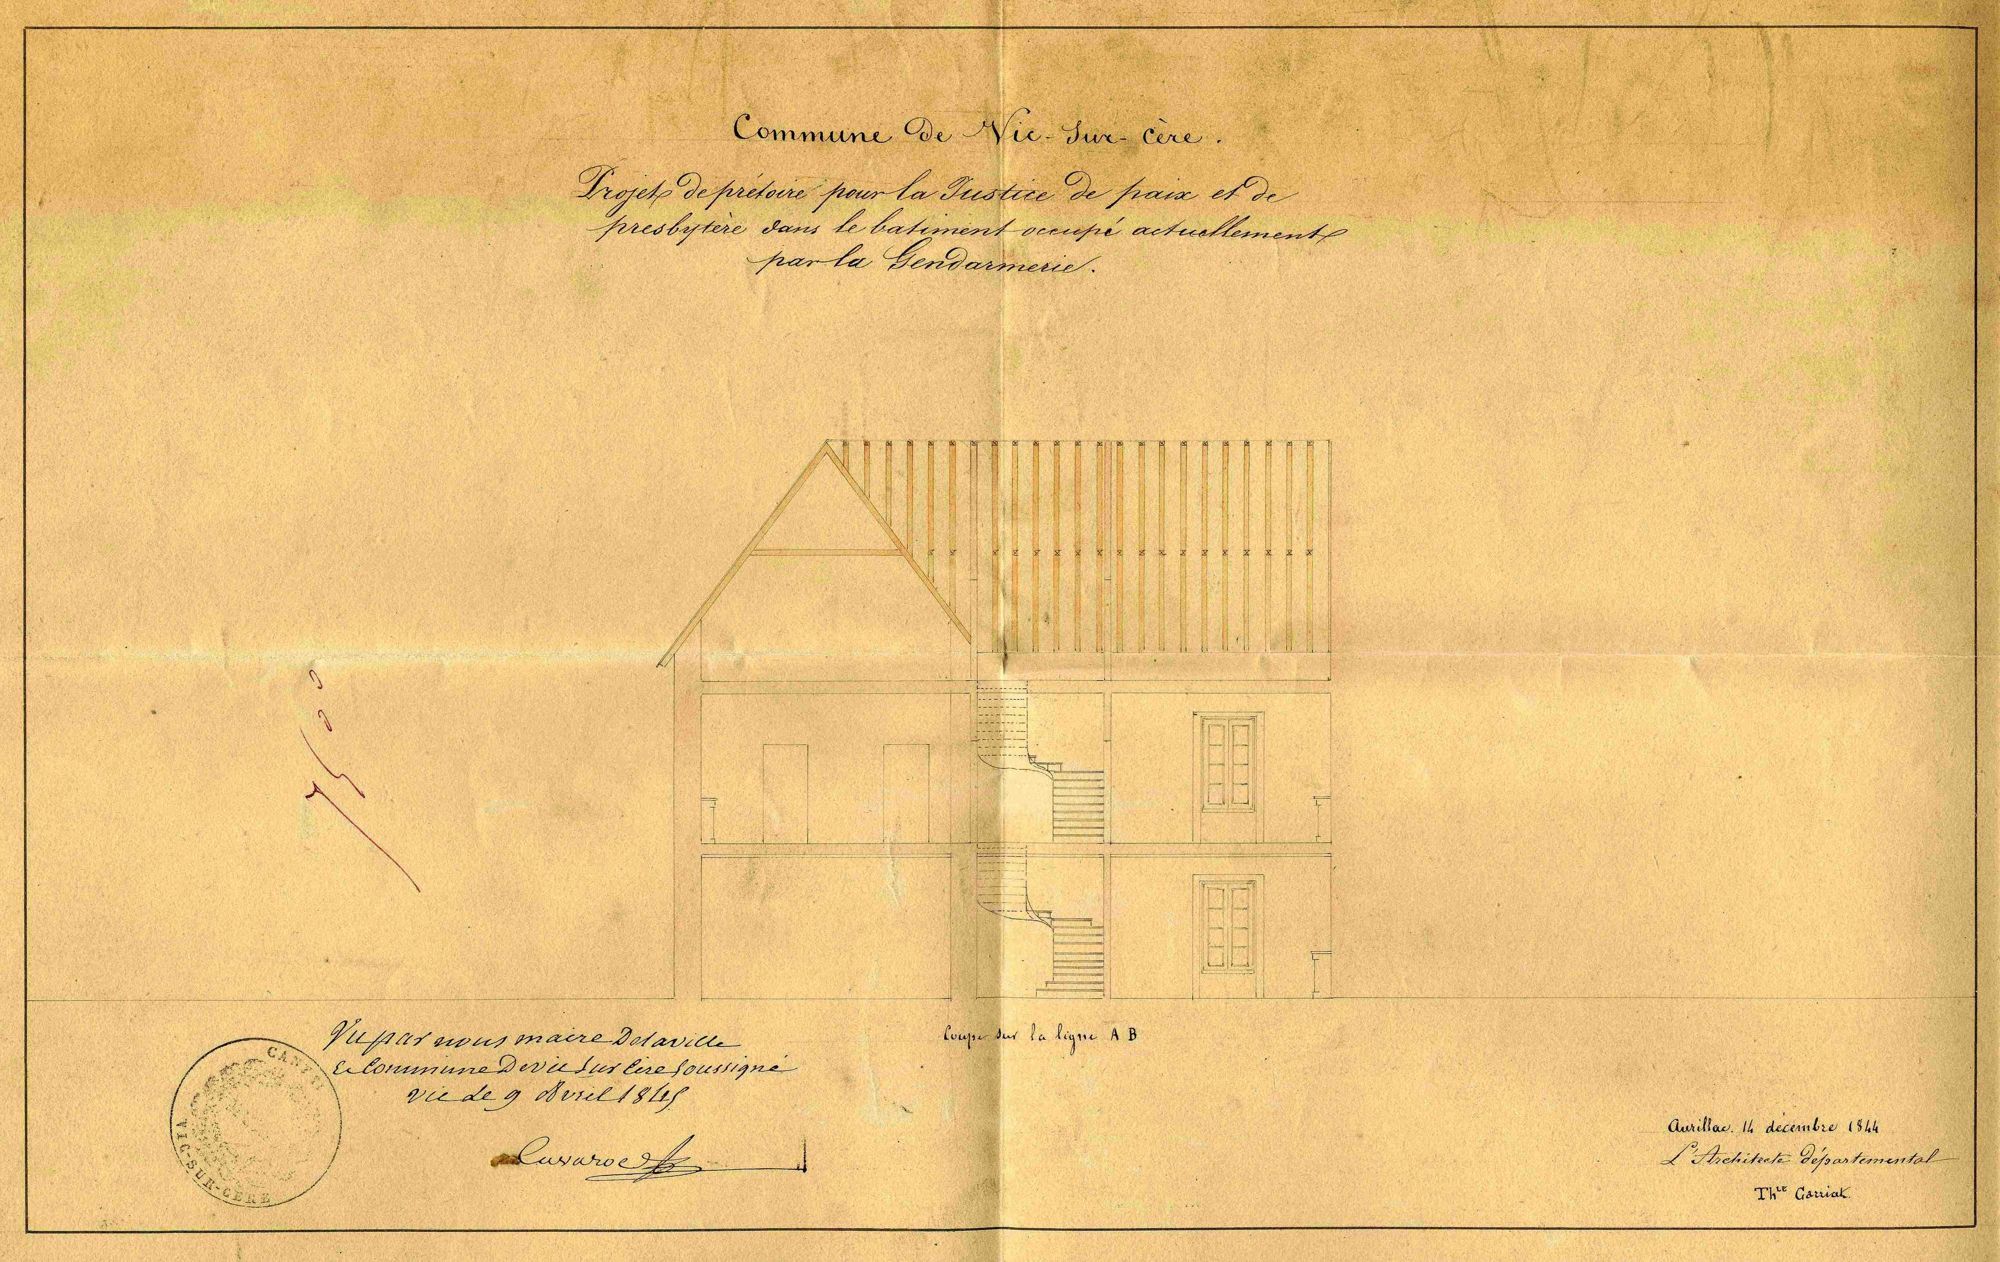 Commune de Vic-sur-cère.
Projet de prétoire pour la Justice de paix et de
presbytère dans le batiment occupé actuellement
par la Gendarmerie.
Coupe sur la ligne A B
Vu par nous maire de la ville
& Commune de vic sur cère soussigné
vic le 9 Avril 1845
CANTAL
VIC-SUR-CERE
Aurillac. 14 décembre 1844
L'Architecte départemental